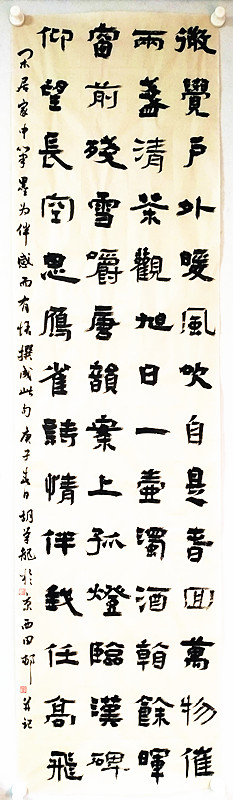 微覺戶外暖風吹自是春回萬物催
兩盞清茶觀旭日一壺濁酒翰餘暉
窗前殘雪嚼唐韻案上孤燈臨漢碑
仰望長空思鴈雀詩情伴我任高飛
閑居家中筆墨为伴感而有悟撰成此句庚子春日胡龍於京西田邨并记